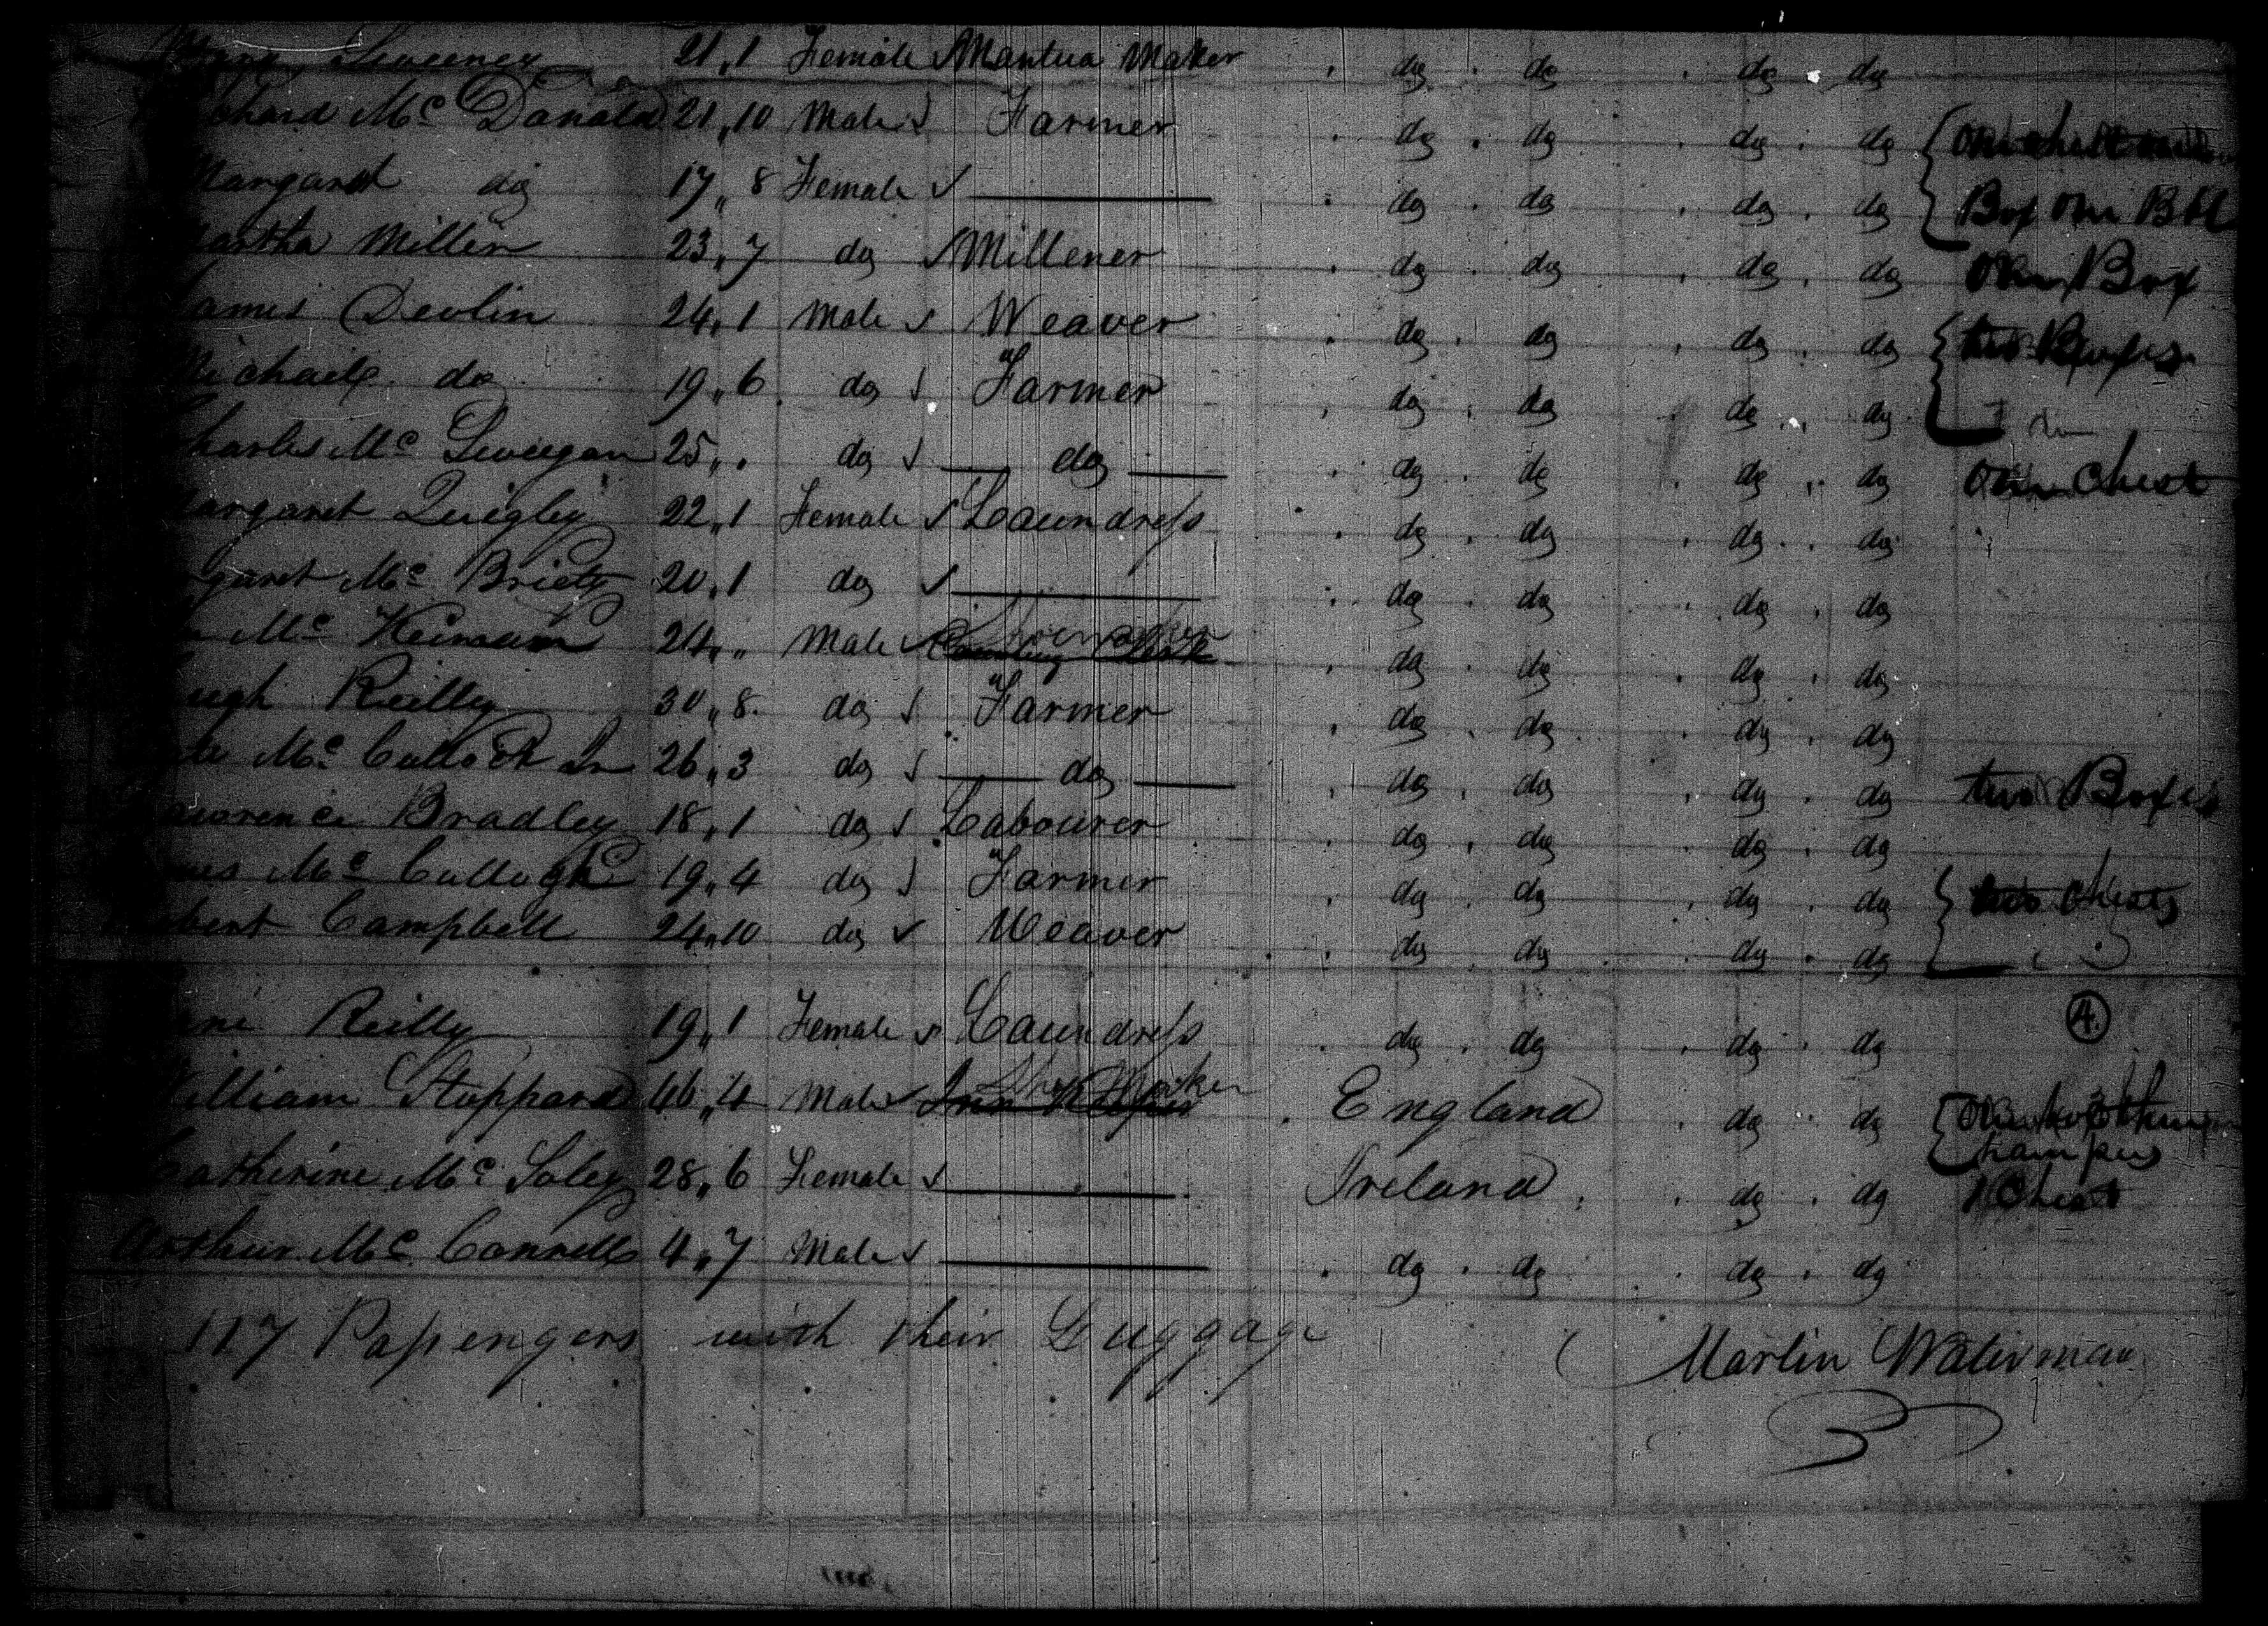 Sweeney 21,,1 Female Mantua Maker . do . do . do . do
Richard Mc Donald 21,,10 Male Farmer . do . do . do . do
Margaret do 17,,8 Female — . do . do . do . do Box one Bbl
Martha Miller 23,,7 do Millener . do . do . do . do one Box
James Devlin 24,,1 Male Weaver . do . do . do . do two Boxes
Michael do 19,,6 do Farmer . do . do . do . do
Charles Mc 25,,. do — do — . do . do . do . do one Chest
Margaret Quigley 22,,1 Female Laundress . do . do . do . do
Margaret Mc Bride 20,,1 do — . do . do . do . do
Mc 24,,,, Male . do . do . do . do
Hugh Reilly 30,,8 do Farmer . do . do . do . do
Mc 26,,3 do — do — . do . do . do . do two Boxes
Lawrence Bradley 18,,1 do Labourer . do . do . do . do
Mc Cullogh 19,,4 do Farmer . do . do . do . do two Chests
Robert Campbell 24,,10 do Weaver . do . do . do . do
4.
Jane Reilly 19,,1 Female Laundress . do . do . do . do
William Stoppard 46,,4 Male Inn Keeper Maker . England . do . do
hampers
Catherine Mc Soley 28,,6 Female — Ireland . . do . do 1 Chest
Arthur Mc Connell 4,,7 Male — . do . do . do . do
117 Passengers with their Luggage
Martin Waterman